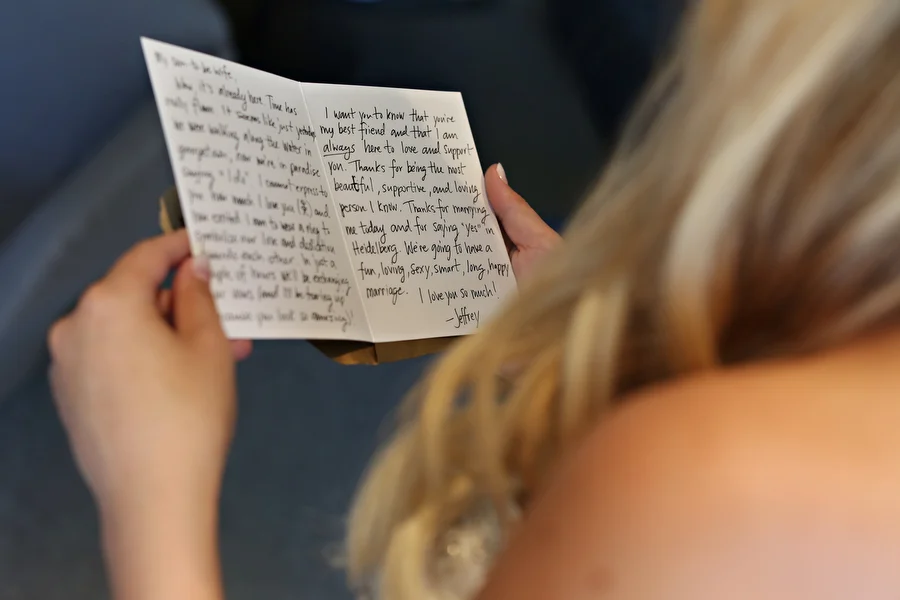 My soon-to-be wife,
Wow, it's already here. Time has
really flown. It seems like just yesterday
we were walking along the water in
georgetown, now we're in paradise
saying "I do". I cannot express to
you how much I love you and
how excited I am to wear a ring to
symbolize our love and dedication
towards each other. In just a
couple of hours we'll be exchanging
our vows (and I'll be tearing up
because you look so amazing)!
I want you to know that you're
my best friend and that I am
always here to love and support
you. Thanks for being the most
beautiful, supportive, and loving
person I know. Thanks for marrying
me today and for saying "yes" in
Heidelberg. We're going to have a
fun, loving, sexy, smart, long, happy
marriage. I love you so much!
-Jeffrey